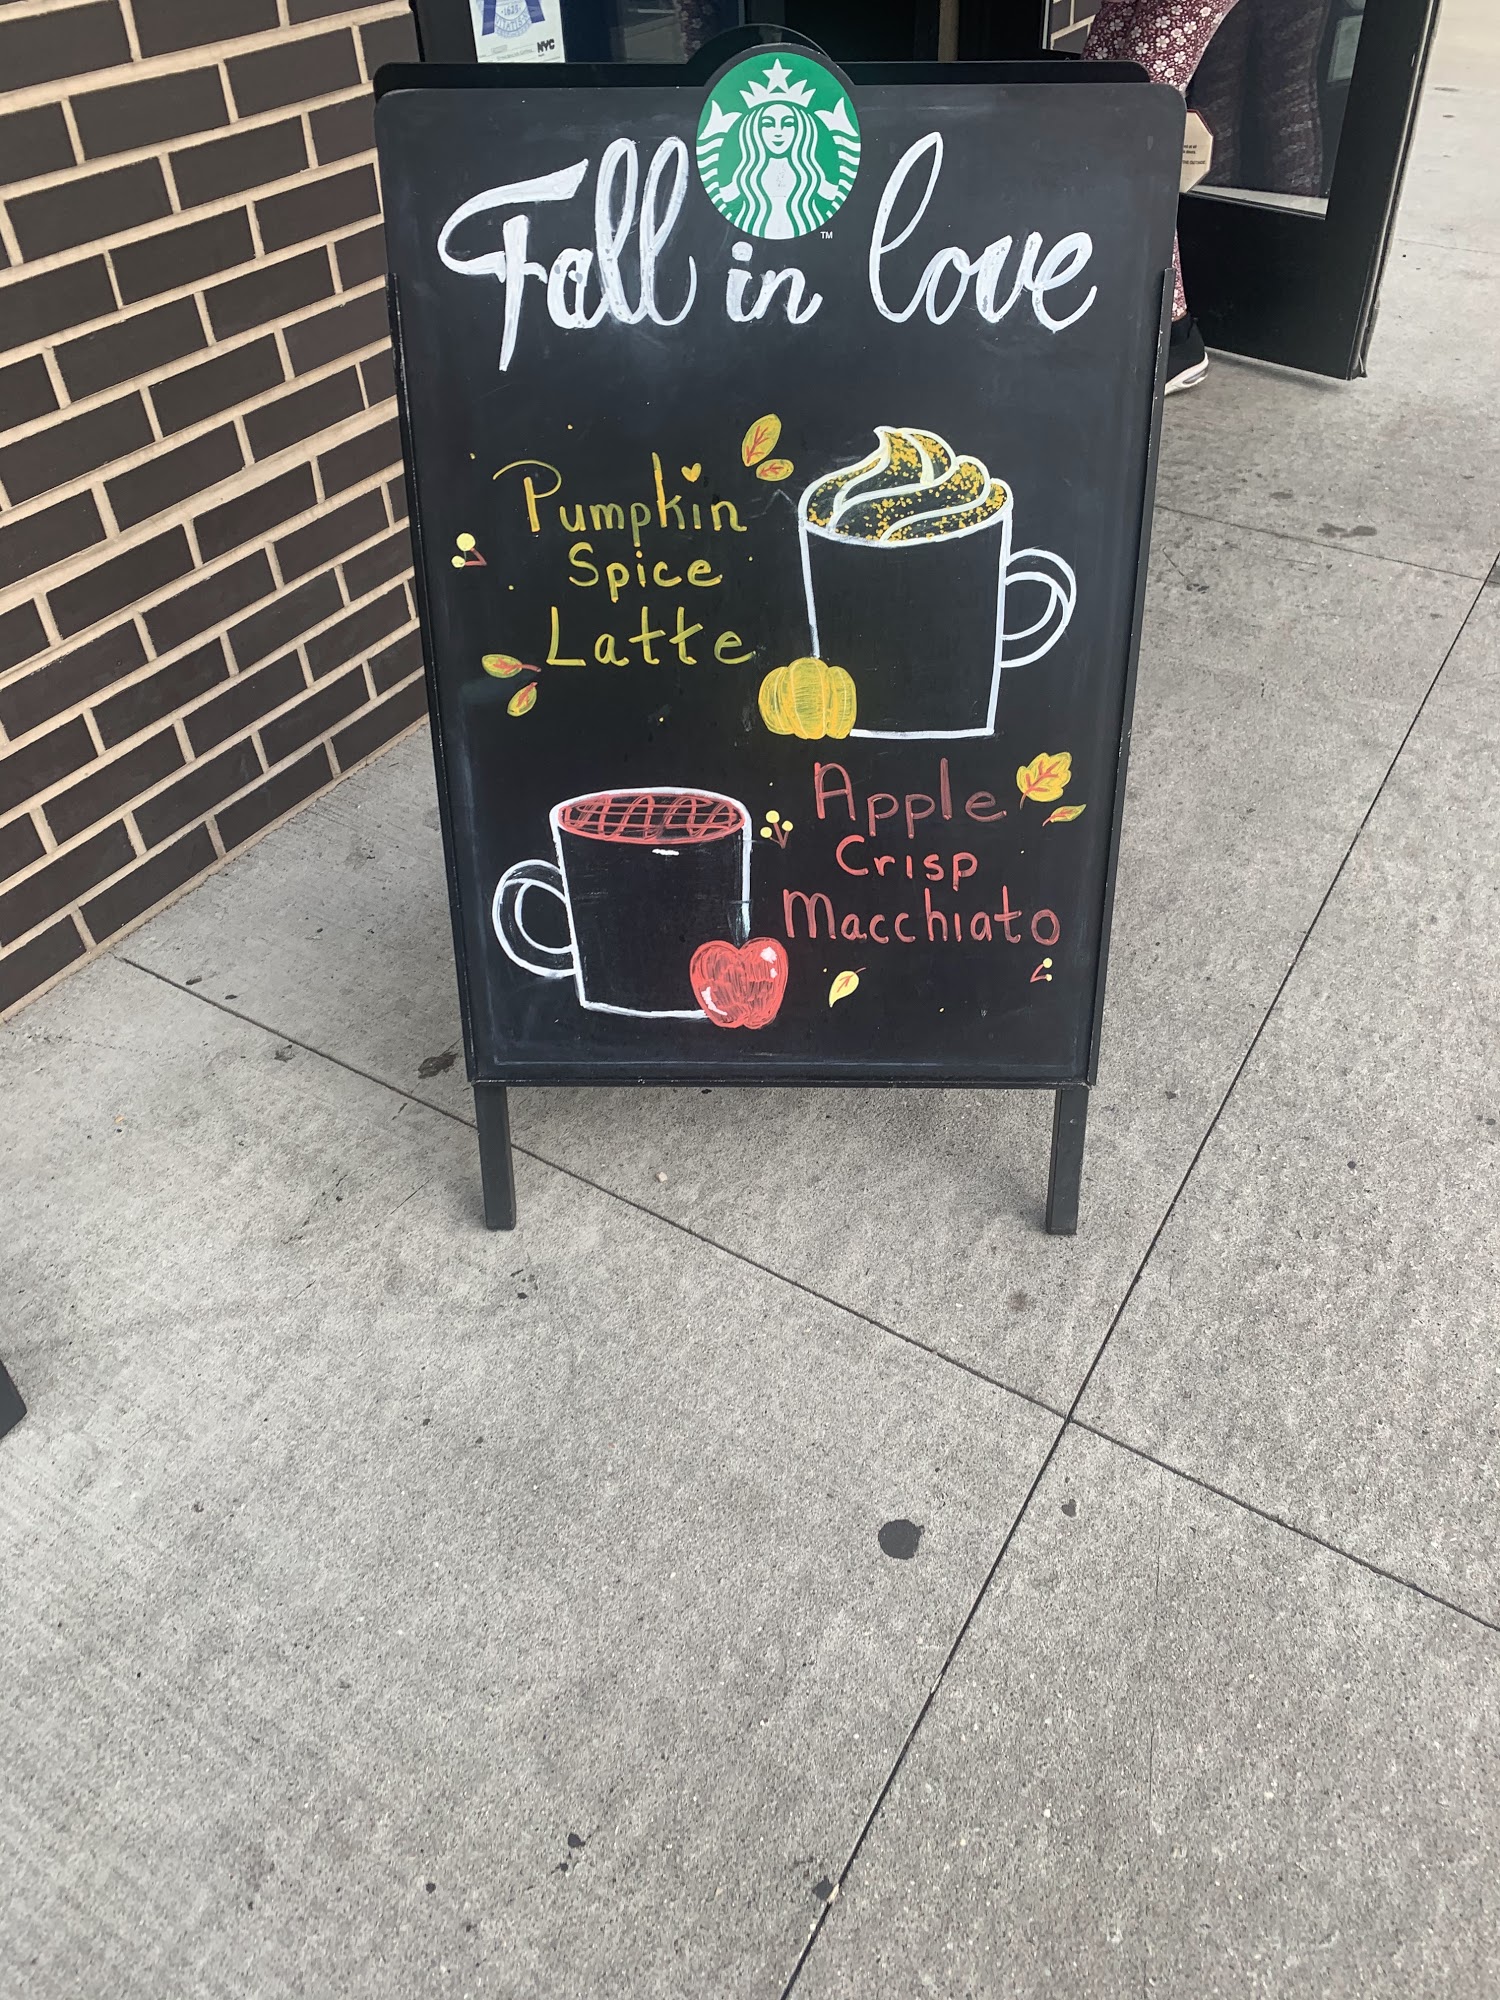 NYC
TM
Fall in love
Pumpkin
Spice
Latte
Apple
Crisp
Macchiato